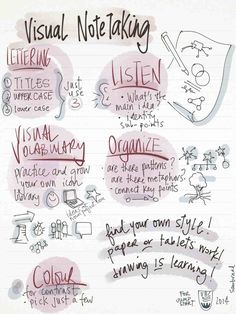 Visual NoteTaking
LETTERING
1 TITLES
2 UPPER CASE
3 lower case
just
use
3
LISTEN
• What's the
main idea?
• identify
sub-points
VISUAL
VOCABULARY
practice and grow
your own icon
library
ORGANIZE
are there patterns?
are there metaphors?
connect key points
find your own style!
paper or tablets work!
drawing is learning!
Colour
for contrast
pick just a few
FOR
2014